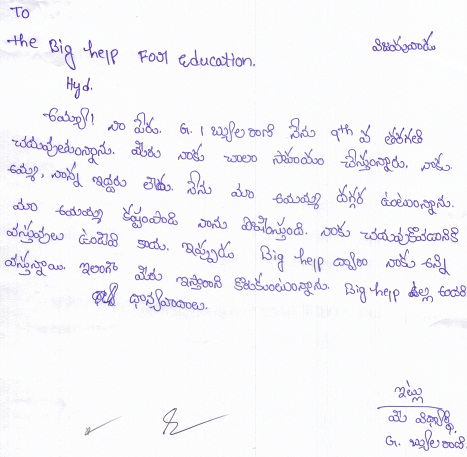 To
the Big help Foor Education.
విజయవాడు
Hyd.
అయ్యా! నా పేరు. G. బ్యుల రాణి నేను 9th వ తరగతి
చదువుతున్నాను. మీరు నాకు చాలా సహయం చేస్తున్నారు. నాకు
అమ్మ, నాన్న ఇద్దరు లేరు. నేను మా అమ్మమ్మ దగ్గర ఉంటున్నాను.
మా అమ్మమ్మ కష్టంపడి నాను పెంచుస్తుంది. నాకు చదువుకొవడానికి
వస్తువులు ఉండేవి కావు. ఇప్పుడు Big help ద్వారా నాకు అన్ని
వస్తున్నాయి. ఇలాగా మీరు ఇస్తారాని కొరుకుంటున్నాను. Big help పిల్ల అందరి
ధాన్యవాదాలు.
ఇట్లు
మీ విధ్యార్థి.
G. బ్యుల రాణి.